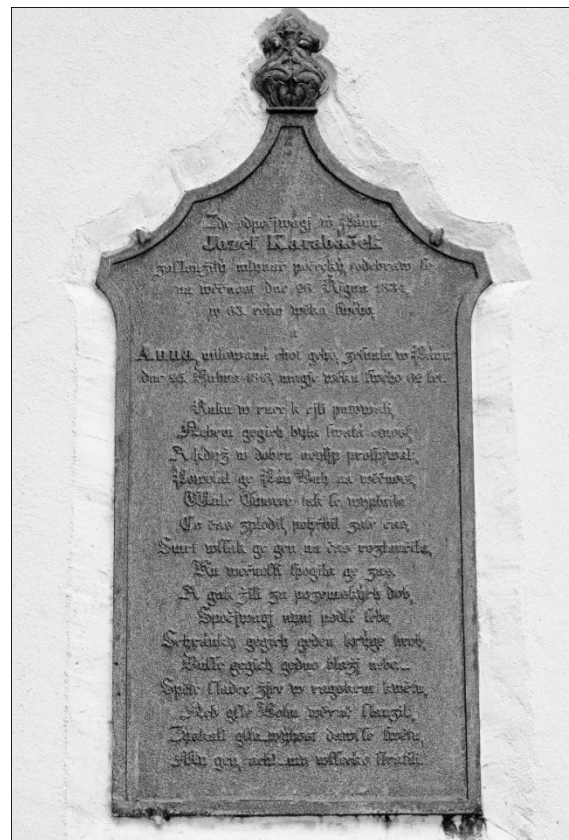 Zde odpočjwagj w Pánu
Jozef Karabáček
zaslaužilý mlynar pořečký, odebraw se
na wěčnost dne 26. Řígna 1834,
w 63. roku wěku swého,
a
Anna, milowaná choť geho, zesnula w Pánu
dne 25. Dubna magjc wěku swého 62 let.
Ruku w ruce k cjli putowali,
gegich byla swatá
A když w dobru neylýp prospjwali,
Powolal ge Pán Bůh na věčnost,
tak se wyplnila
Co čas zplodil, pohřbil zas čas,
Smrt wssak ge gen na čas rozlaučila,
Ku wěčnosti spogila ge zas.
A gak žili za pozemských dob,
Spočjwagj nynj podlé sebe,
Schránky gegich geden kryge hrob,
Dusse gegich gedno blažj nebe.
Spěte sladce zde w kwětu,
Neb gste Bohu wěrně slaužili,
Zjskali gste dawsse swětu,
My gen, ach! wssecko stratili.